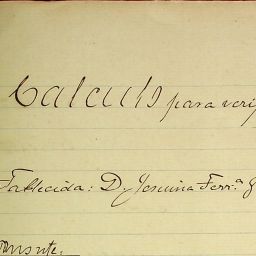 Calculo para veri
Fallecida: D. Jesuina Ferr.ª G